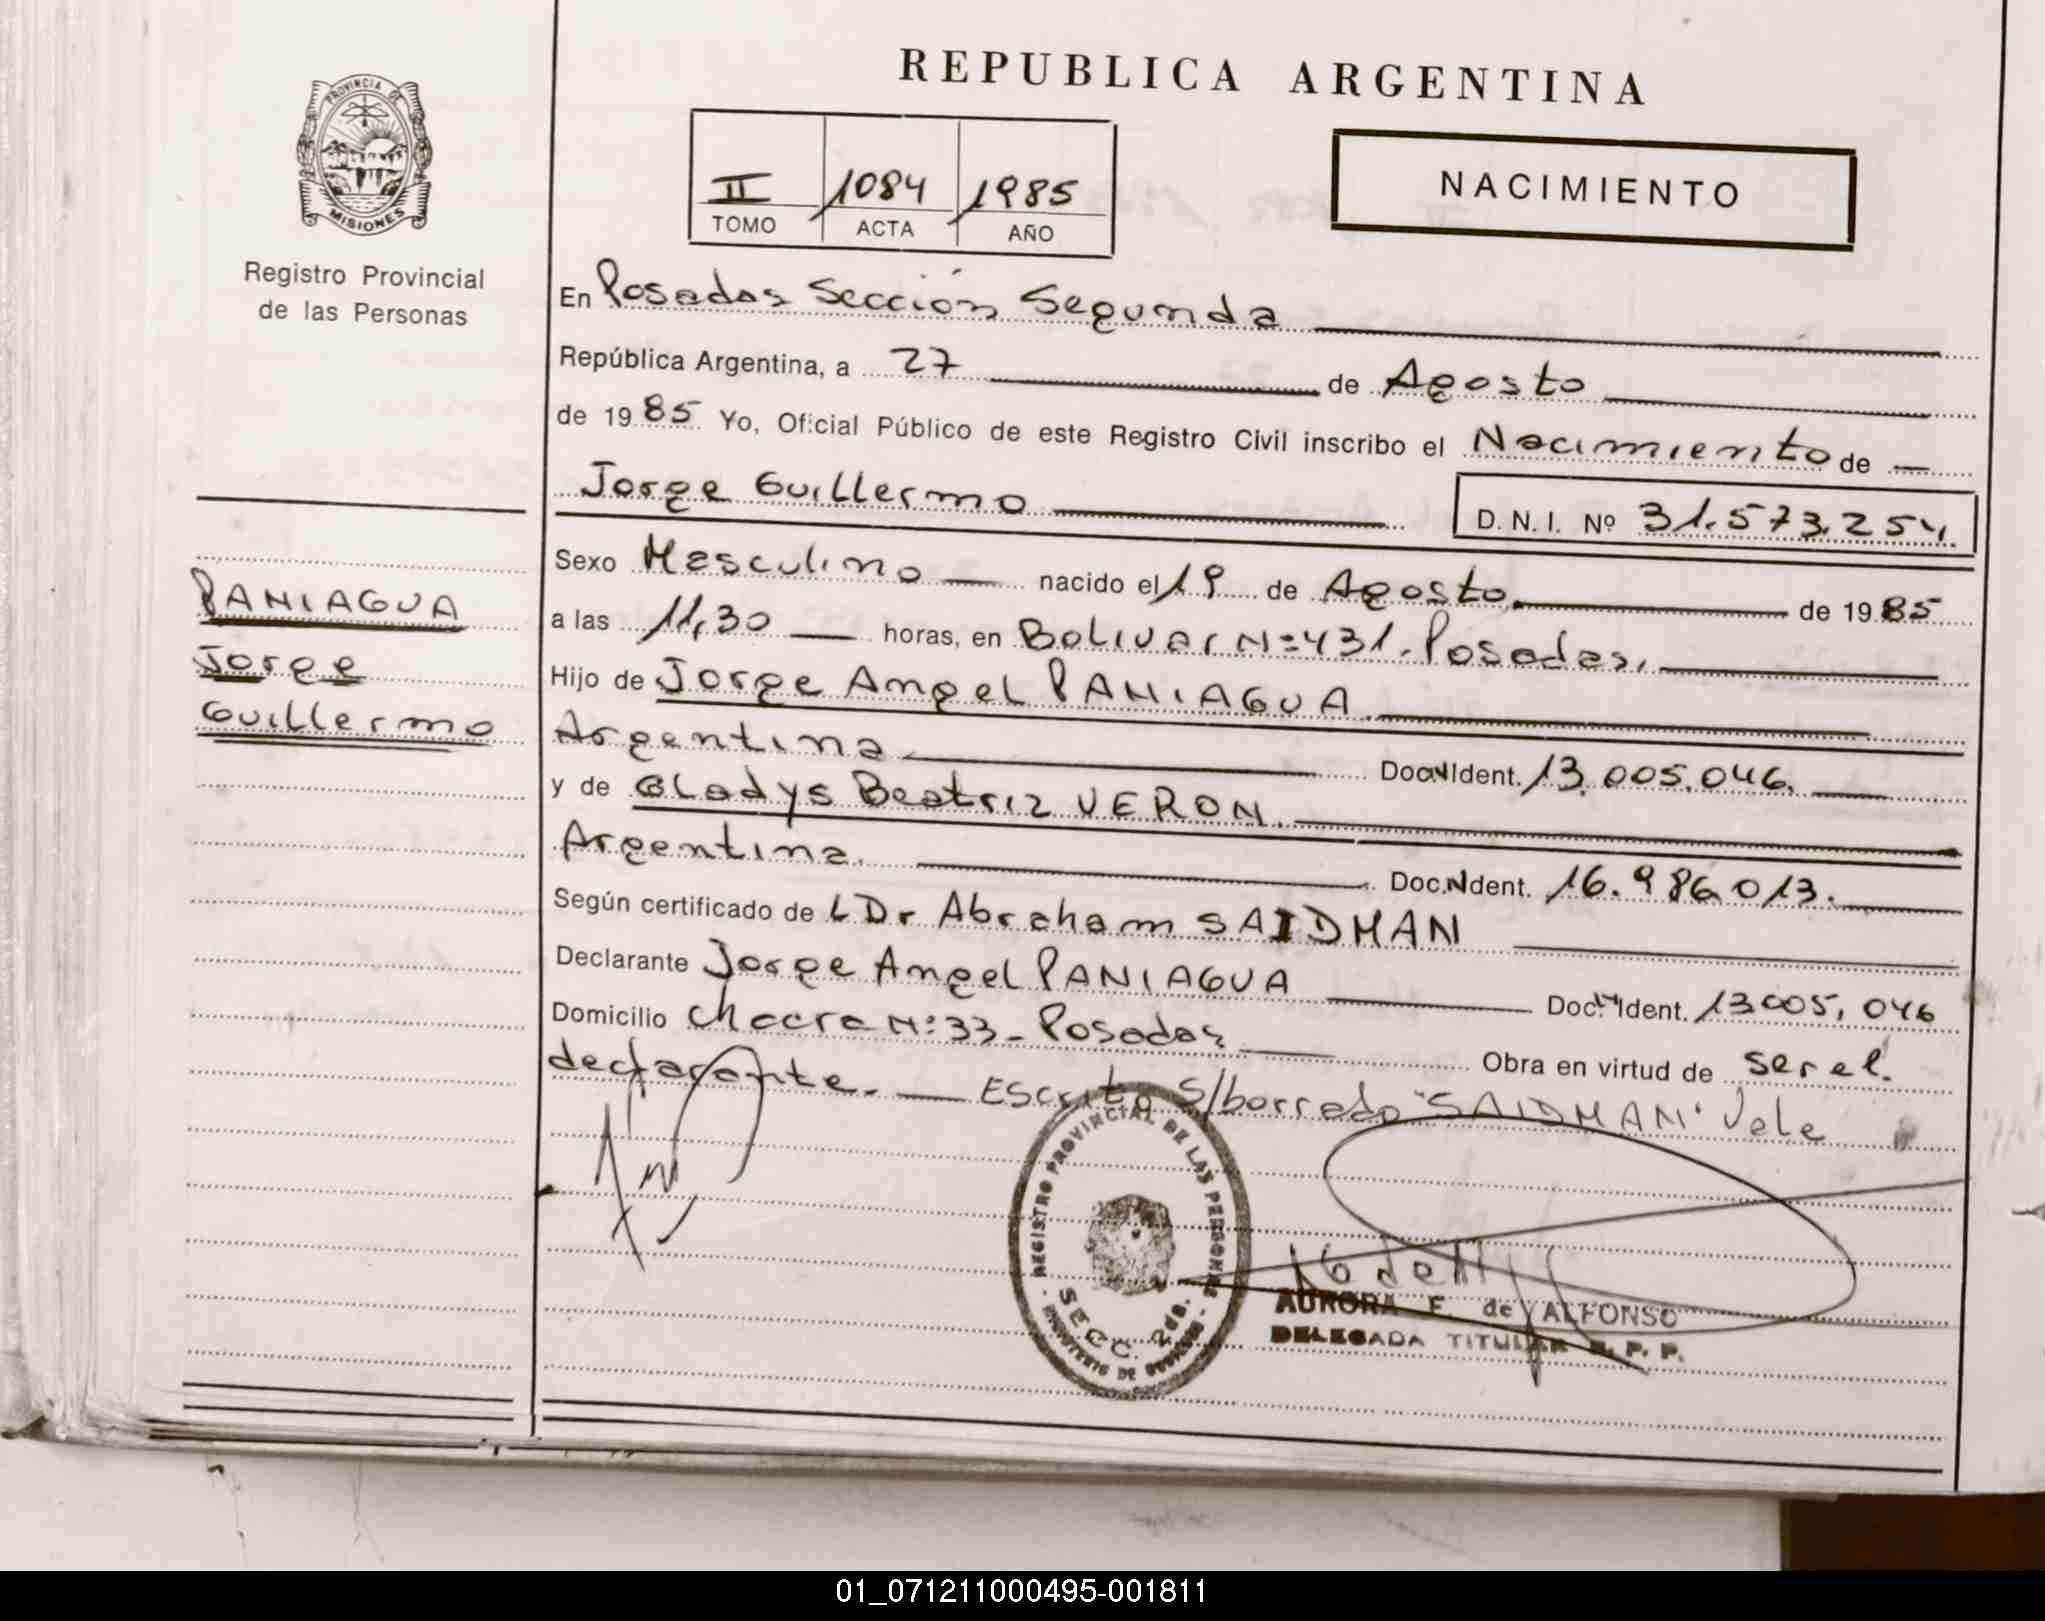 REPUBLICA ARGENTINA
PROVINCIA DE
MISIONES
Registro Provincial
de las Personas
II 1084 1985
TOMO ACTA AÑO
NACIMIENTO
En Posadas Sección Segunda
República Argentina, a 27 de Agosto
de 1985 Yo, Oficial Público de este Registro Civil inscribo el Nacimiento de
Jorge Guillermo D. N. I. Nº 31.573.254.
Sexo Masculino nacido el 19 de Agosto. de 1985
a las 11,30 horas, en Bolivar Nº 431. Posadas.
Hijo de Jorge Angel PANIAGUA.
Argentina Doc.N.Ident. 13.005.046.
y de Gladys Beatriz VERON.
Argentina. Doc.N.Ident. 16.986.013.
Según certificado de L Dr Abraham SAIDMAN
Declarante Jorge Angel PANIAGUA Doc.N.Ident. 13005.046
Domicilio Chacra Nº 33 - Posadas Obra en virtud de ser el.
declarante. Escrito S/borrado "SAIDMAN" Vale
PANIAGUA
Jorge
Guillermo
REGISTRO PROVINCIAL DE LAS PERSONAS
SECC. 2da.
MINISTERIO DE GOBIERNO
AURORA F. de ALFONSO
DELEGADA TITULAR R. P. P.
01_071211000495-001811